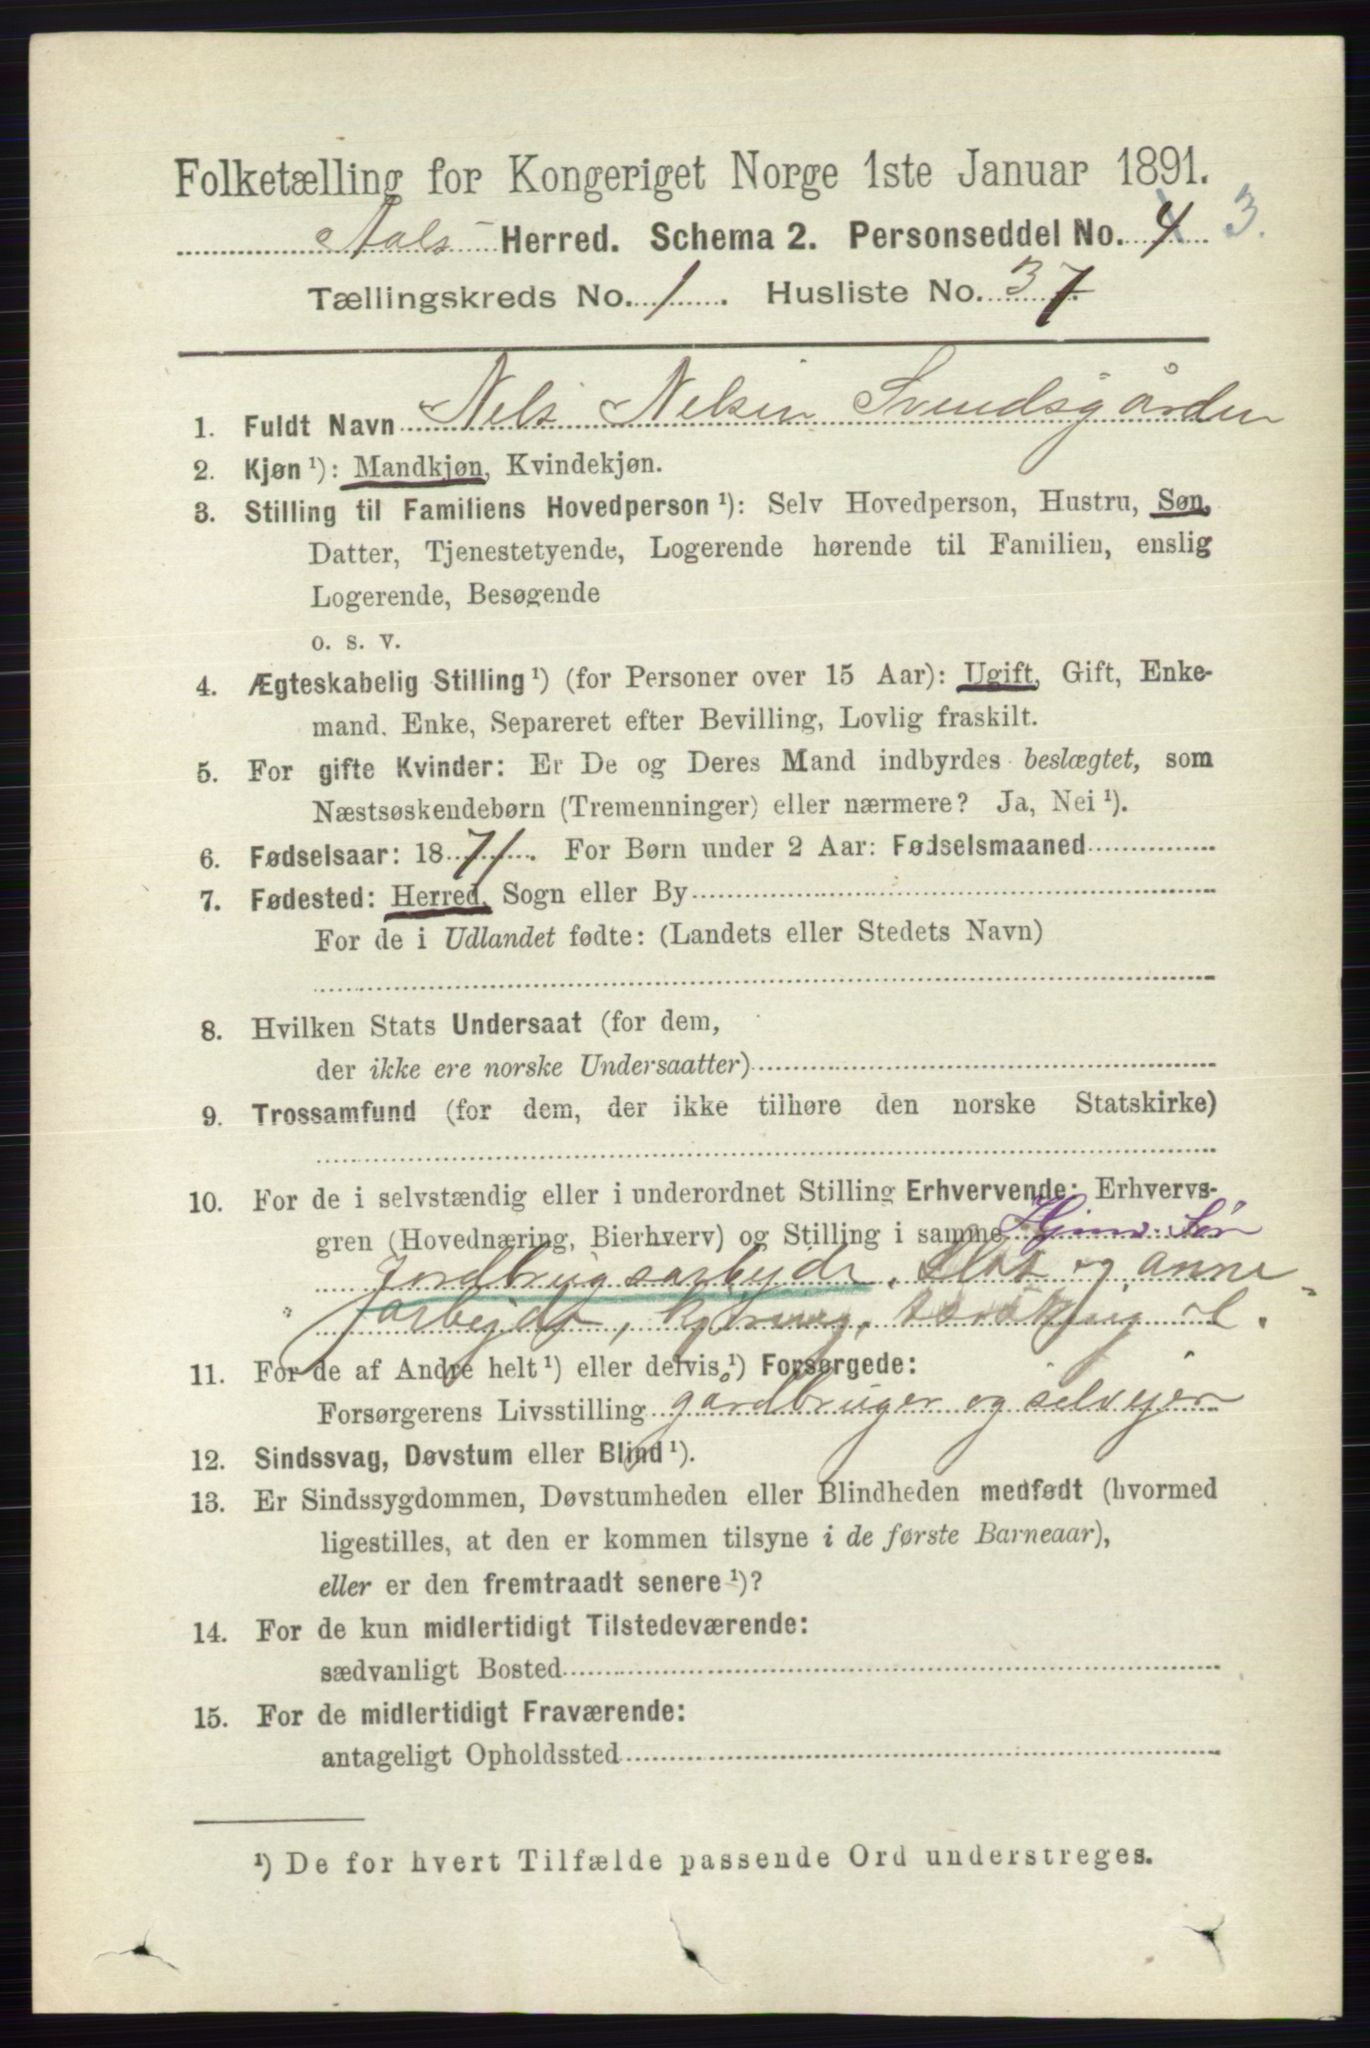 Folketælling for Kongeriget Norge 1ste Januar 1891.
Aals Herred. Schema 2. Personseddel No. 4 3.
Tællingskreds No. 1. Husliste No. 37.
1. Fuldt Navn Nels Nelsen Svendsgården
2. Kjøn ¹): Mandkjøn, Kvindekjøn.
3. Stilling til Familiens Hovedperson ¹): Selv Hovedperson, Hustru, Søn,
Datter, Tjenestetyende, Logerende hørende til Familien, enslig
Logerende, Besøgende
o. s. v.
4. Ægteskabelig Stilling ¹) (for Personer over 15 Aar): Ugift, Gift, Enke-
mand. Enke, Separeret efter Bevilling, Lovlig fraskilt.
5. For gifte Kvinder: Er De og Deres Mand indbyrdes beslægtet, som
Næstsøskendebørn (Tremenninger) eller nærmere? Ja, Nei ¹).
6. Fødselsaar: 1871. For Børn under 2 Aar: Fødselsmaaned
7. Fødested: Herred, Sogn eller By
For de i Udlandet fødte: (Landets eller Stedets Navn)
8. Hvilken Stats Undersaat (for dem,
der ikke ere norske Undersaatter)
9. Trossamfund (for dem, der ikke tilhøre den norske Statskirke)
10. For de i selvstændig eller i underordnet Stilling Erhvervende: Erhvervs-
gren (Hovednæring, Bierhverv) og Stilling i samme Hjmv. Søn
Jordbrugsarbejde, Slot og anne
arbejde, kjöring,
11. For de af Andre helt ¹) eller delvis ¹) Forsørgede:
Forsørgerens Livsstilling gårdbruger og selvejer
12. Sindssvag, Døvstum eller Blind ¹).
13. Er Sindssygdommen, Døvstumheden eller Blindheden medfødt (hvormed
ligestilles, at den er kommen tilsyne i de første Barneaar),
eller er den fremtraadt senere ¹)?
14. For de kun midlertidigt Tilstedeværende:
sædvanligt Bosted
15. For de midlertidigt Fraværende:
antageligt Opholdssted
¹) De for hvert Tilfælde passende Ord understreges.